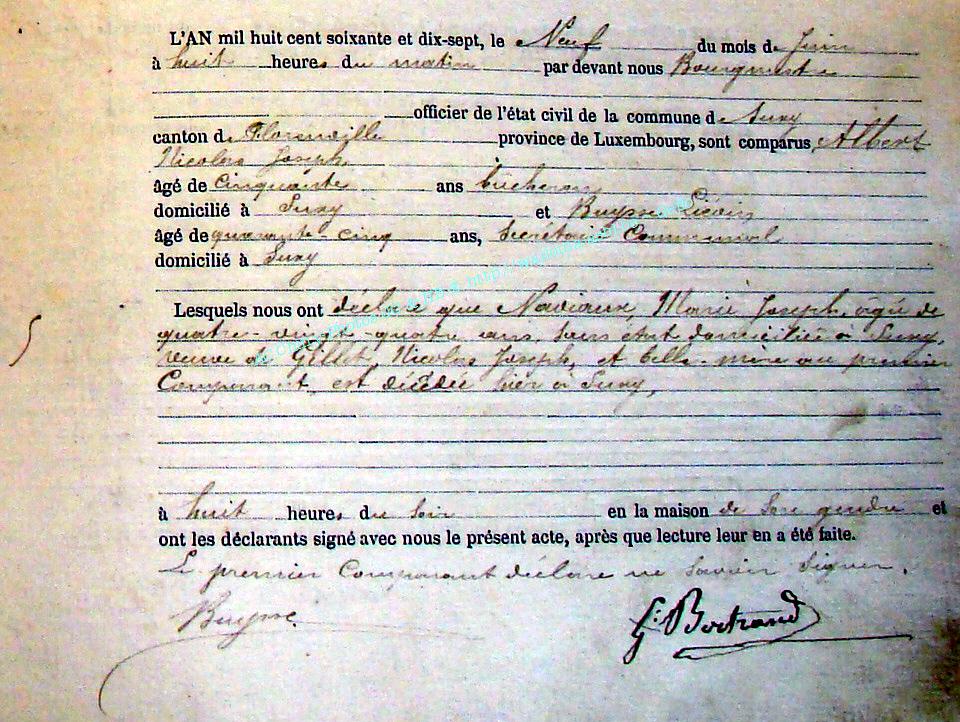 L'AN mil huit cent soixante et dix-sept, le Neuf du mois de Juin
à huit heures du matin par devant nous Bourgmestre
officier de l'état civil de la commune de Suxy
canton de Florenville province de Luxembourg, sont comparus Albert
Nicolas Joseph
âgé de cinquante ans bûcheron
domicilié à Suxy et Buysse Liévin
âgé de quarante-cinq ans, Secrétaire Communal
domicilié à Suxy
Lesquels nous ont déclaré que Naviaux, Marie Joseph, âgée de
quatre-vingt-quatre ans, sans état domiciliée à Suxy,
veuve de Gillet, Nicolas Joseph, et belle-mère au premier
Comparant, est décédée hier à Suxy,
à huit heures du soir en la maison de son gendre et
ont les déclarants signé avec nous le présent acte, après que lecture leur en a été faite.
Le premier Comparant déclare ne savoir signer.
Buysse
G. Bertrand